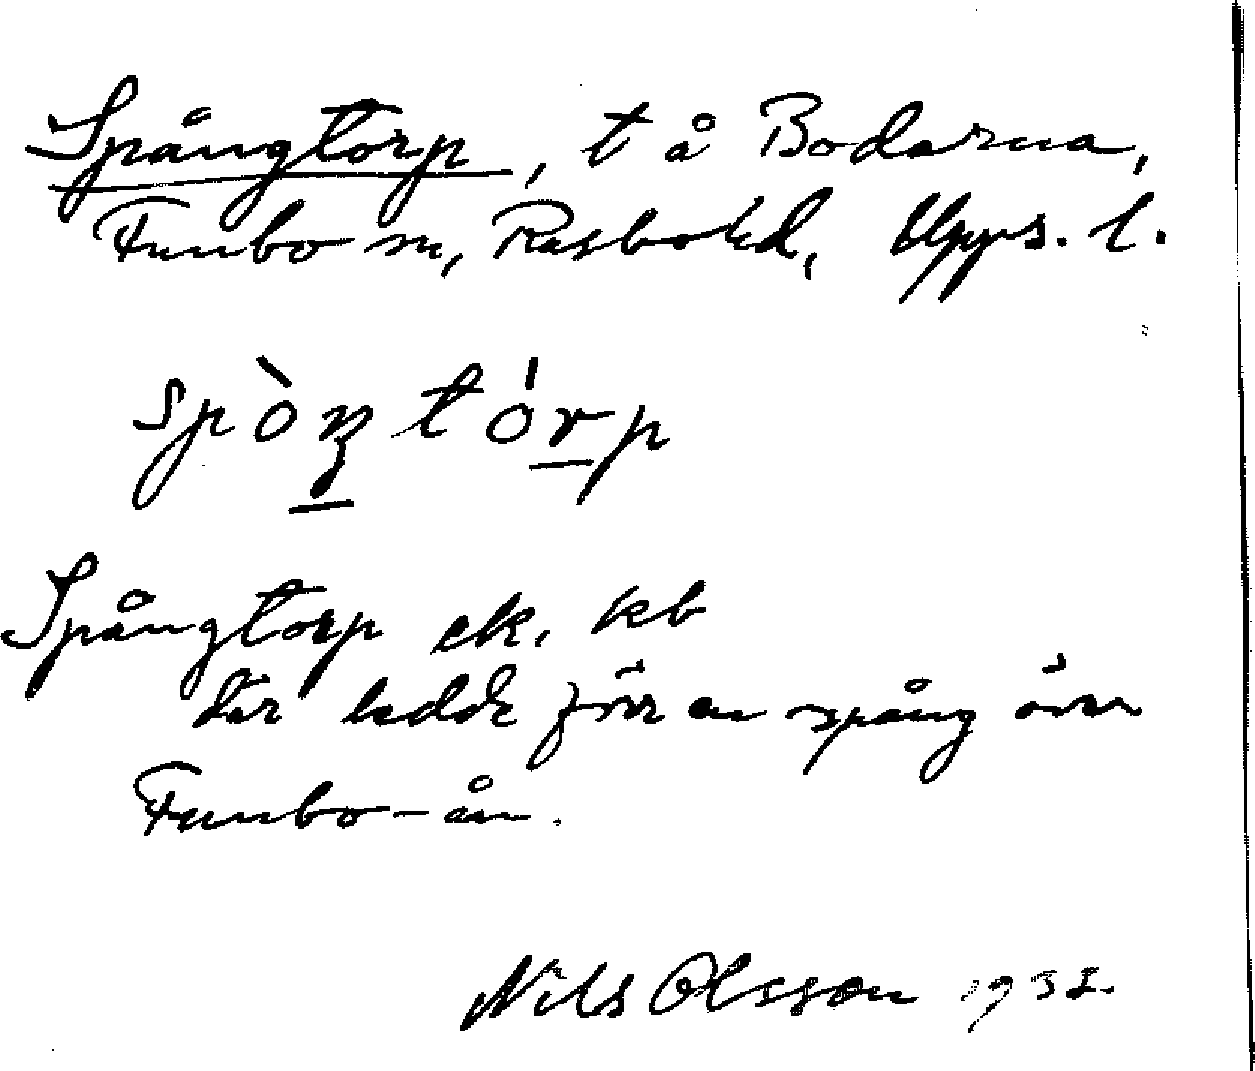 Spångtorp, t å Bodarna,
Funbo sn, Rasbo hd, Upps. l.
spòŋtórp
Spångtorp ek, kb
Där ledde förr en spång över
Funbo-ån.
Nils Olsson